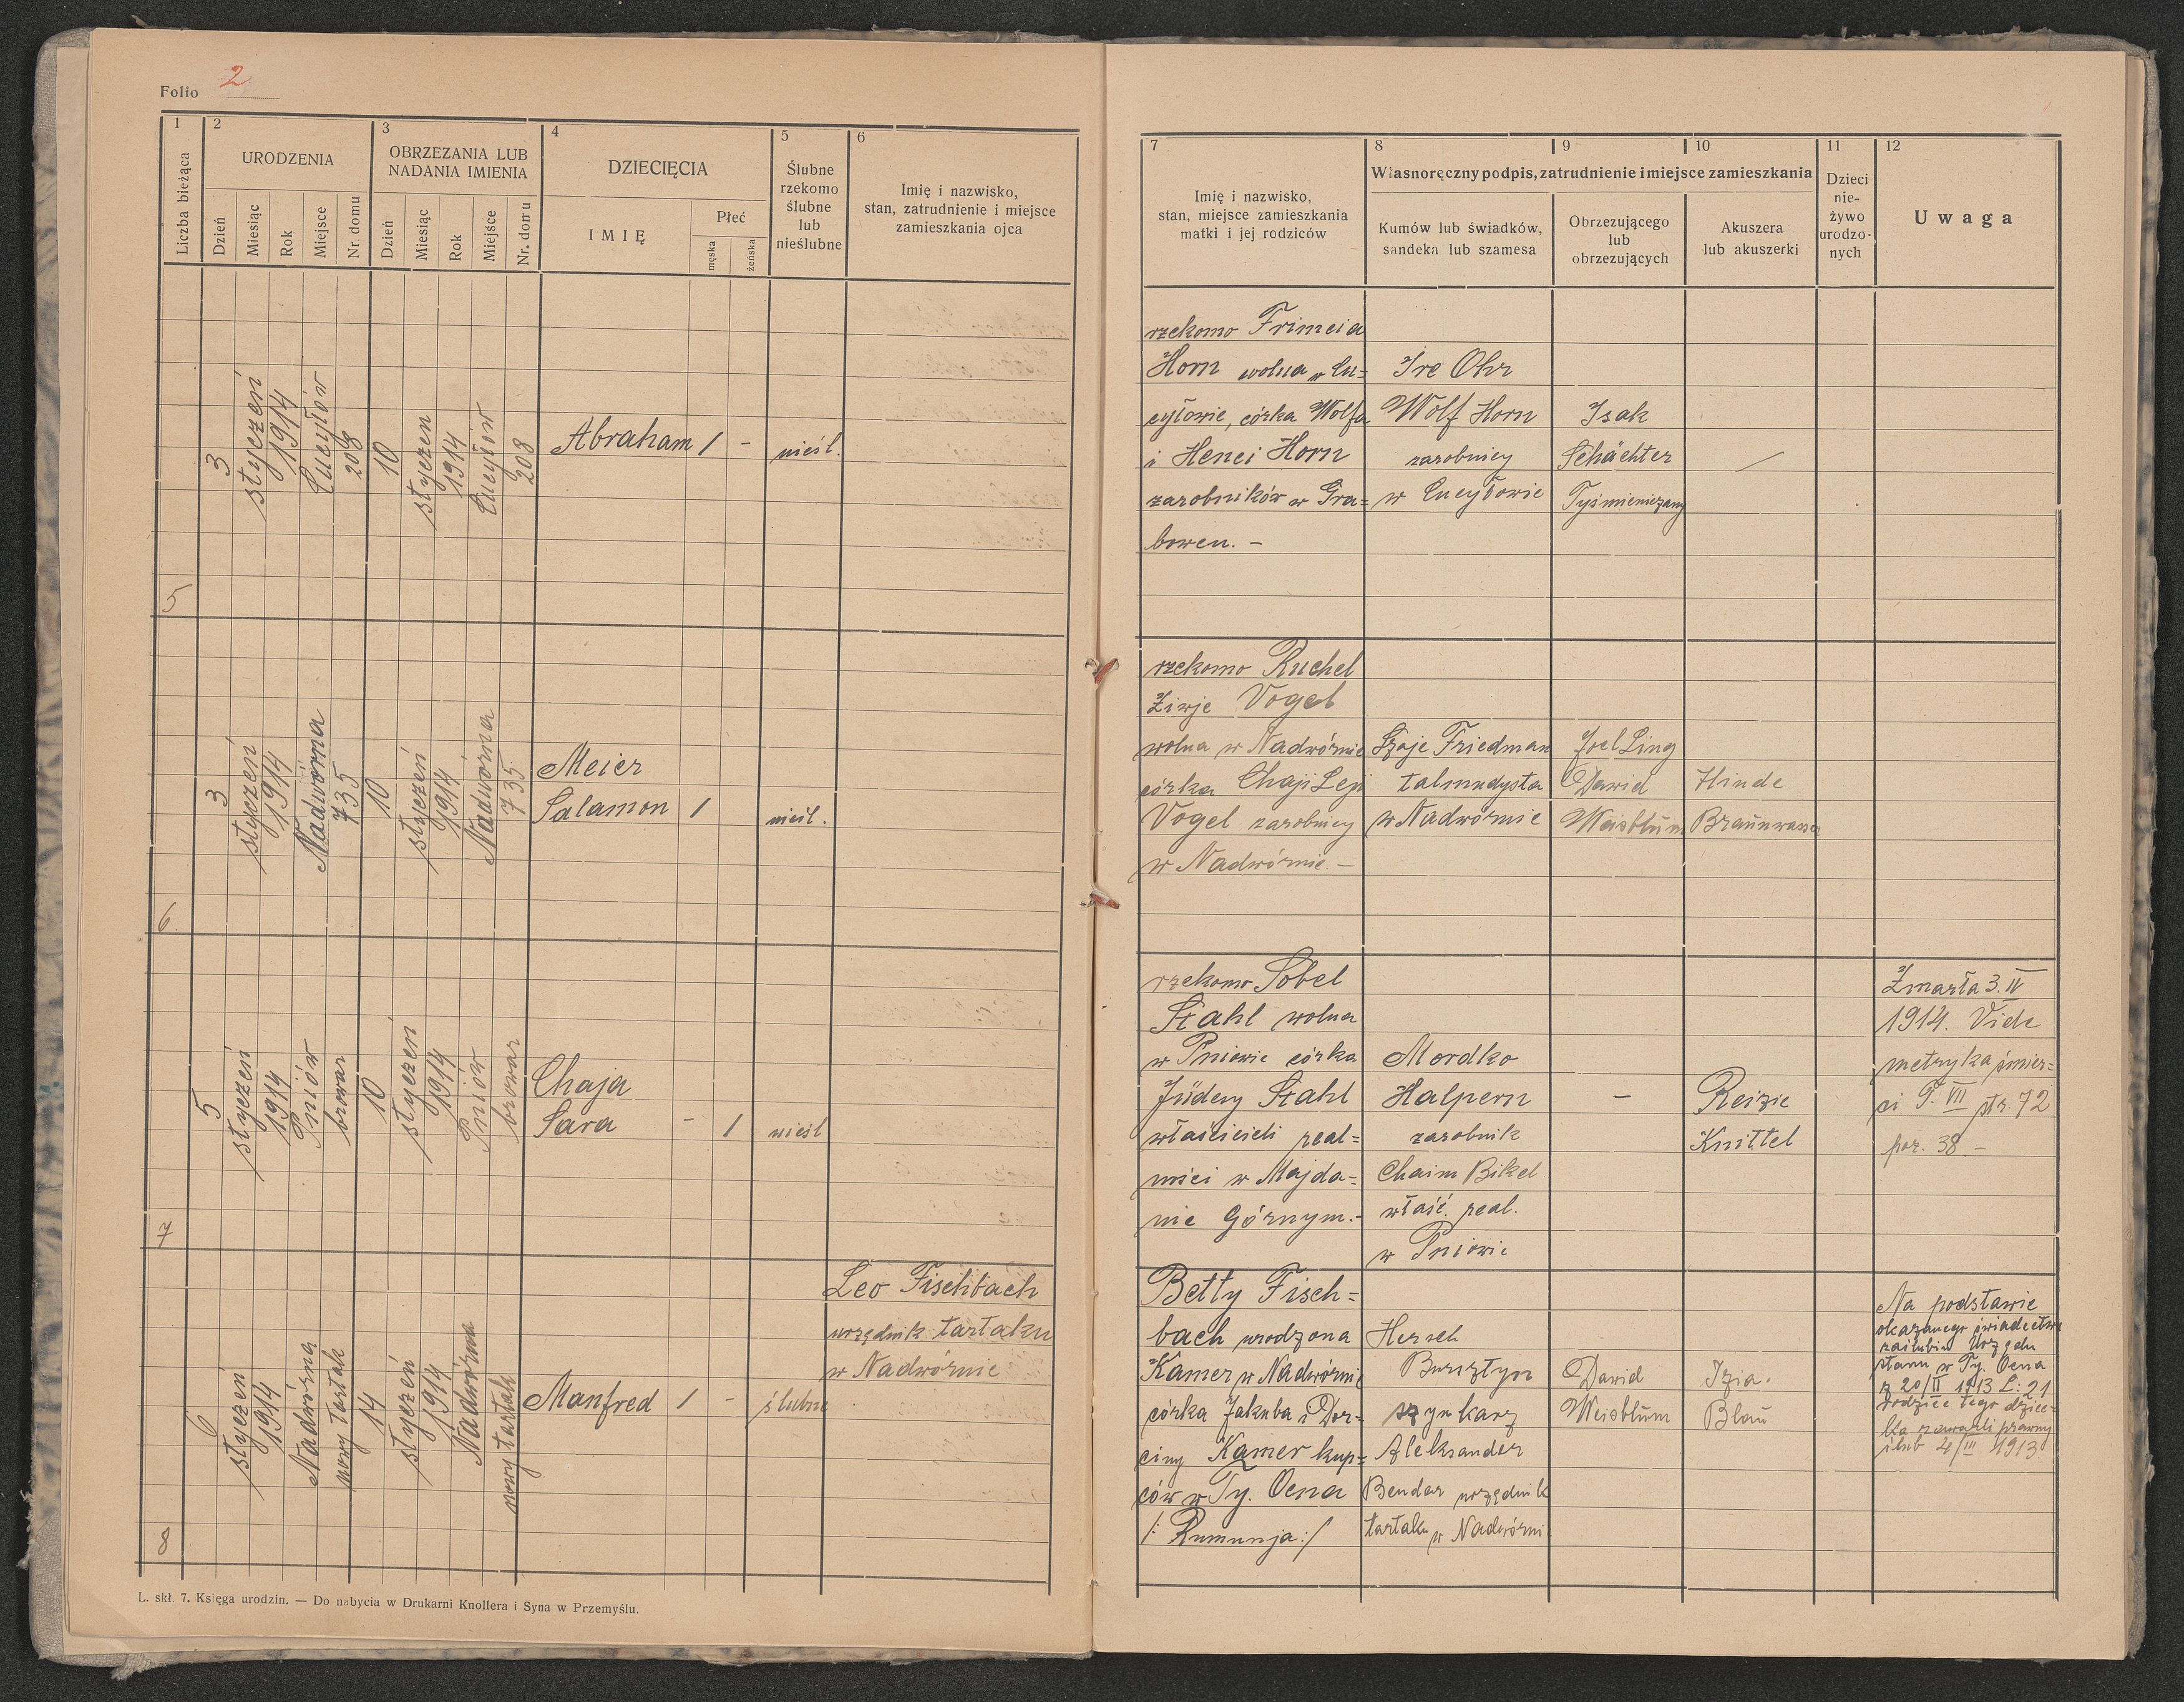 Folio 2
1 2 3 4 5 6
Liczba bieżąca
URODZENIA
Dzień Miesiąc Rok Miejsce Nr. domu
OBRZEZANIA LUB
NADANIA IMIENIA
Dzień Miesiąc Rok Miejsce Nr. domu
DZIECIĘCIA
IMIĘ
Płeć
męska żeńska
Ślubne
rzekomo
ślubne
lub
nieślubne
Imię i nazwisko,
stan, zatrudnienie i miejsce
zamieszkania ojca
7 8 9 10 11 12
Imię i nazwisko,
stan, miejsce zamieszkania
matki i jej rodziców
Własnoręczny podpis, zatrudnienie i miejsce zamieszkania
Kumów lub świadków,
sandeka lub szamesa
Obrzezującego
lub
obrzezujących
Akuszera
lub akuszerki
Dzieci
nie-
żywo
urodzo-
nych
Uwaga
5
3
styczeń
1914
Łucyłów
208
10
styczeń
1914
Łucyłów
208
Abraham / -
nieśl.
rzekomo Frimcia
Horn wolna w Łu=
cyłowie, córka Wolfa
i Henci Horn
zarobników w Gra=
bowcu. -
Ire Ohr
Wolf Horn
zarobnicy
w Łucyłowie
Isak
Schächter
Tyśmieniczany
/
6
3
styczeń
1914
Nadwórna
735
10
styczeń
1914
Nadwórna
735
Meier
Salamon /
nieśl.
rzekomo Ruchel
Ziwje Vogel
wolna w Nadwórnie
córka Chaji Leji
Vogel zarobnicy
w Nadwórnie. -
Szaje Friedman
talmudysta
w Nadwórnie
Joel Ling
Dawid
Weisblŭm
Hinde
Braŭnwang
7
5
styczeń
1914
Pniów
browar
10
styczeń
1914
Pniów
browar
Chaja
Sara - /
nieśl
rzekomo Sobel
Stahl wolna
w Pniowie córka
Jŭdesy Stahl
właścicieli real=
ności w Majda=
nie Górnym.-
Mordko
Halpern
zarobnik
Chaim Bikel
właść. real.
w Pniowie
-
Reizie
Knittel
Zmarła 3. IV
1914. Vide
metryka śmier=
ci T. VII str. 72
poz. 38. -
8
6
styczeń
1914
Nadwórna
nowy tartak
14
styczeń
1914
Nadwórna
nowy tartak
Manfred / -
ślubne
Leo Fischbach
urzędnik tartaku
w Nadwórnie
Betty Fisch=
bach urodzona
Kamer w Nadwórnie
córka Jakuba i Dor=
ciny Kamer kup=
ców w Tg. Ocna
/: Rumunja :/
Hersch
Bursztyn
szynkarz
Aleksander
Bendar urzędnik
tartaku w Nadwórni
Dawid
Weisblŭm
Izia.
Blaŭ
Na podstawie
okazanego świadectwa
zaślubin Urzędu
stanu w Tg. Ocna
z 20/II 1913 L: 21
rodzice tego dziec=
ka zawarli prawny
ślub 4/III 1913
L. skł. 7. Księga urodzin. — Do nabycia w Drukarni Knollera i Syna w Przemyślu.